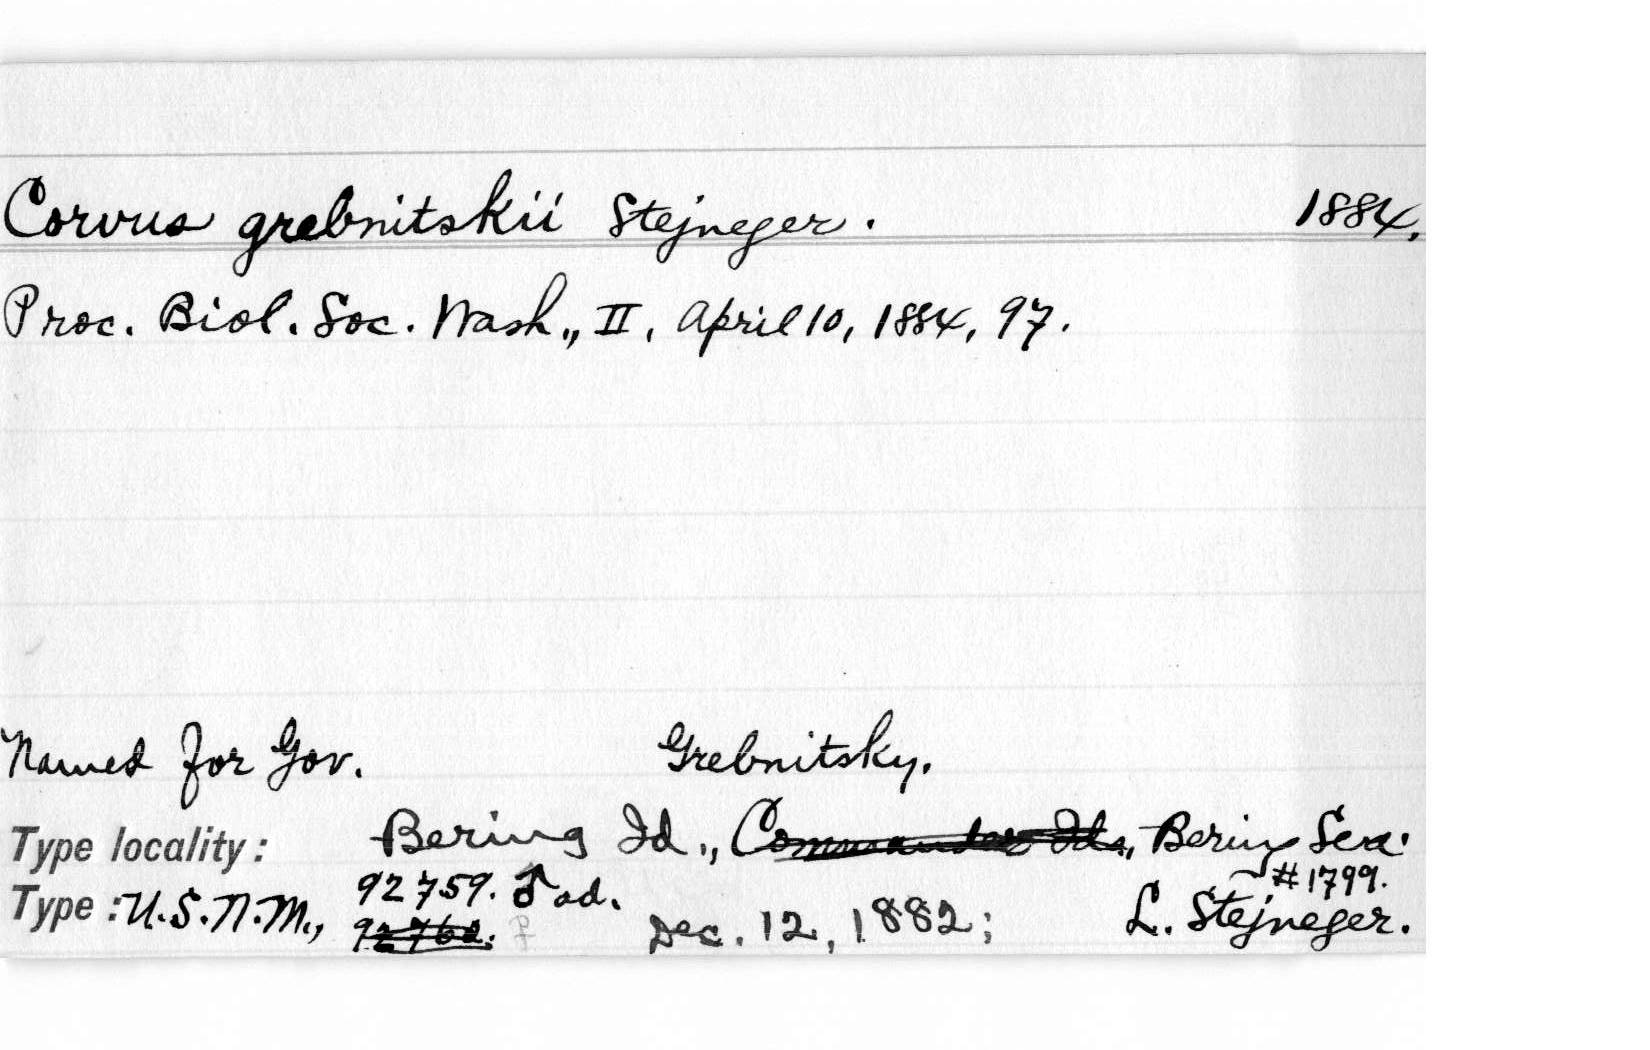 Corvus grebnitskii Stejneger. 1884.
Proc. Biol. Soc. Wash., II, April 10, 1884, 97.
Named for Gov. Grebnitsky.
Type locality: Bering Id., Commander Ids., Bering Sea.
92759. ♂ ad. #1799.
Type: U.S.N.M., 92762. ♀ Dec. 12, 1882; L. Stejneger.